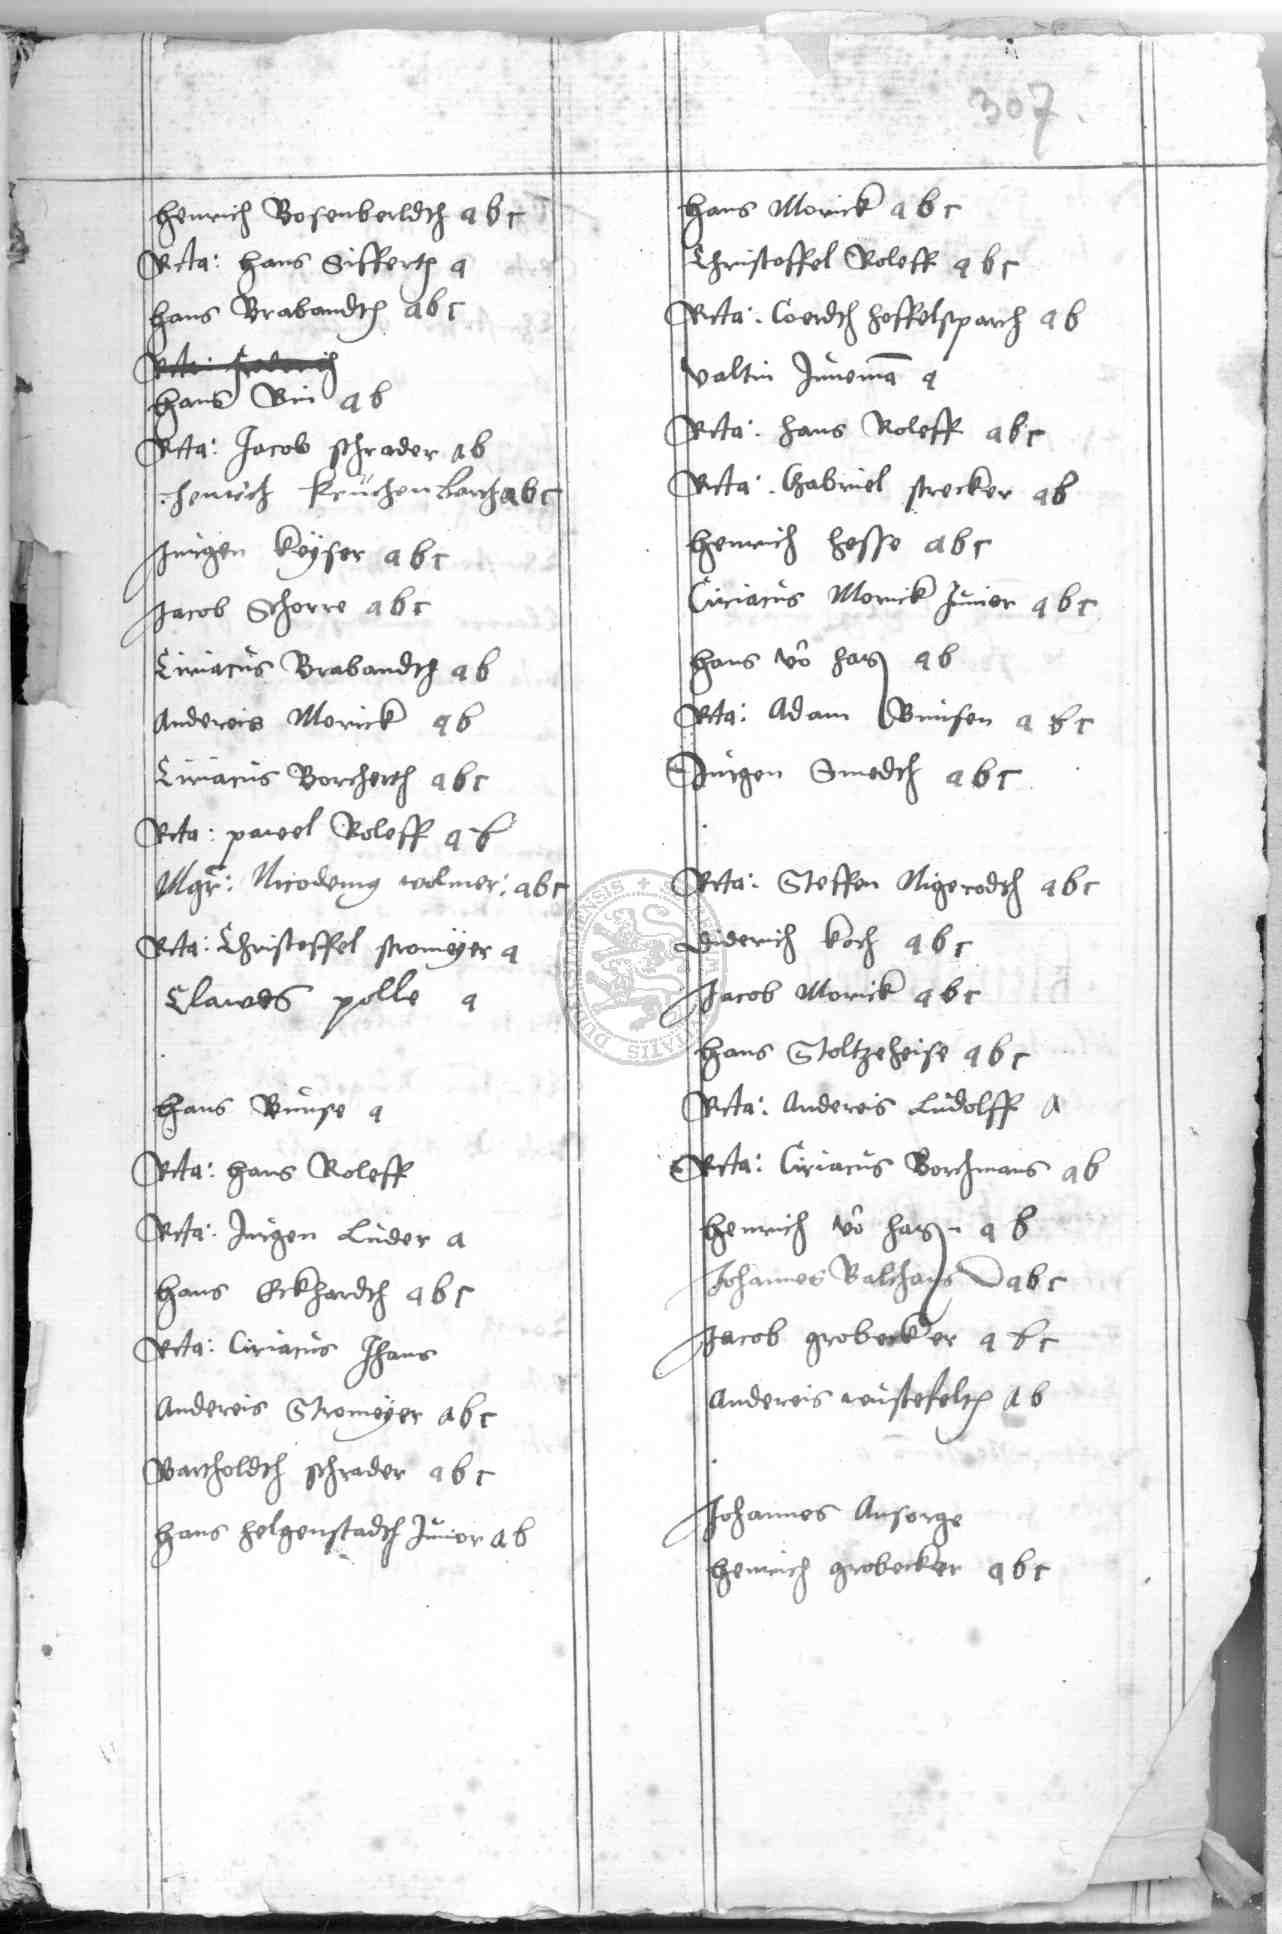 307
henrich Bosenberldth abc
Rcta: hans Sifferth a
hans Brabandth abc
Rcta:
hans Bin ab
Rcta: Jacob schrader ab
henrich Kruchenberch abc
Jurgen Keÿser abc
Jacob Schorre abc
Ciriacus Brabandth ab
Andereis Morick ab
Ciriacus Borcherth abc
Rcta: pawel Roleff ab
Mgr: Nicodemus volmer: abc
Rcta: Christoffel stromeÿer a
Clawes polle a
hans Bunse a
Rcta: hans Roleff
Rcta: Jurgen Luder a
hans Eckhardth abc
Rcta: Ciriacus Jhans
Andereis Stromeÿer abc
Bartholdth schrader abc
hans helgenstadth Junior ab
hans Morick abc
Christoffel Roleff abc
Rcta: Coerdth heffelsparch ab
valtin Junemā a
Rcta: hans Roleff abc
Rcta: Gabriel strecker ab
henrich hesse abc
Ciriacus Morick Junier abc
hans vō hag ab
Rcta: Adam Bunsen abc
Jurgen Smedth abc
Rcta: Steffen Nigerodth abc
Diderich Koch abc
Jacob Morick abc
hans Stoltzeheise abc
Rcta: Andereis Ludolff A
Rcta: Ciriacus Borchmans ab
henrich vō hag ab
Johannes Balthaus abc
Jacob grobecker abc
Andereis wustefelth ab
Johannes Ansorge
henrich grobecker abc